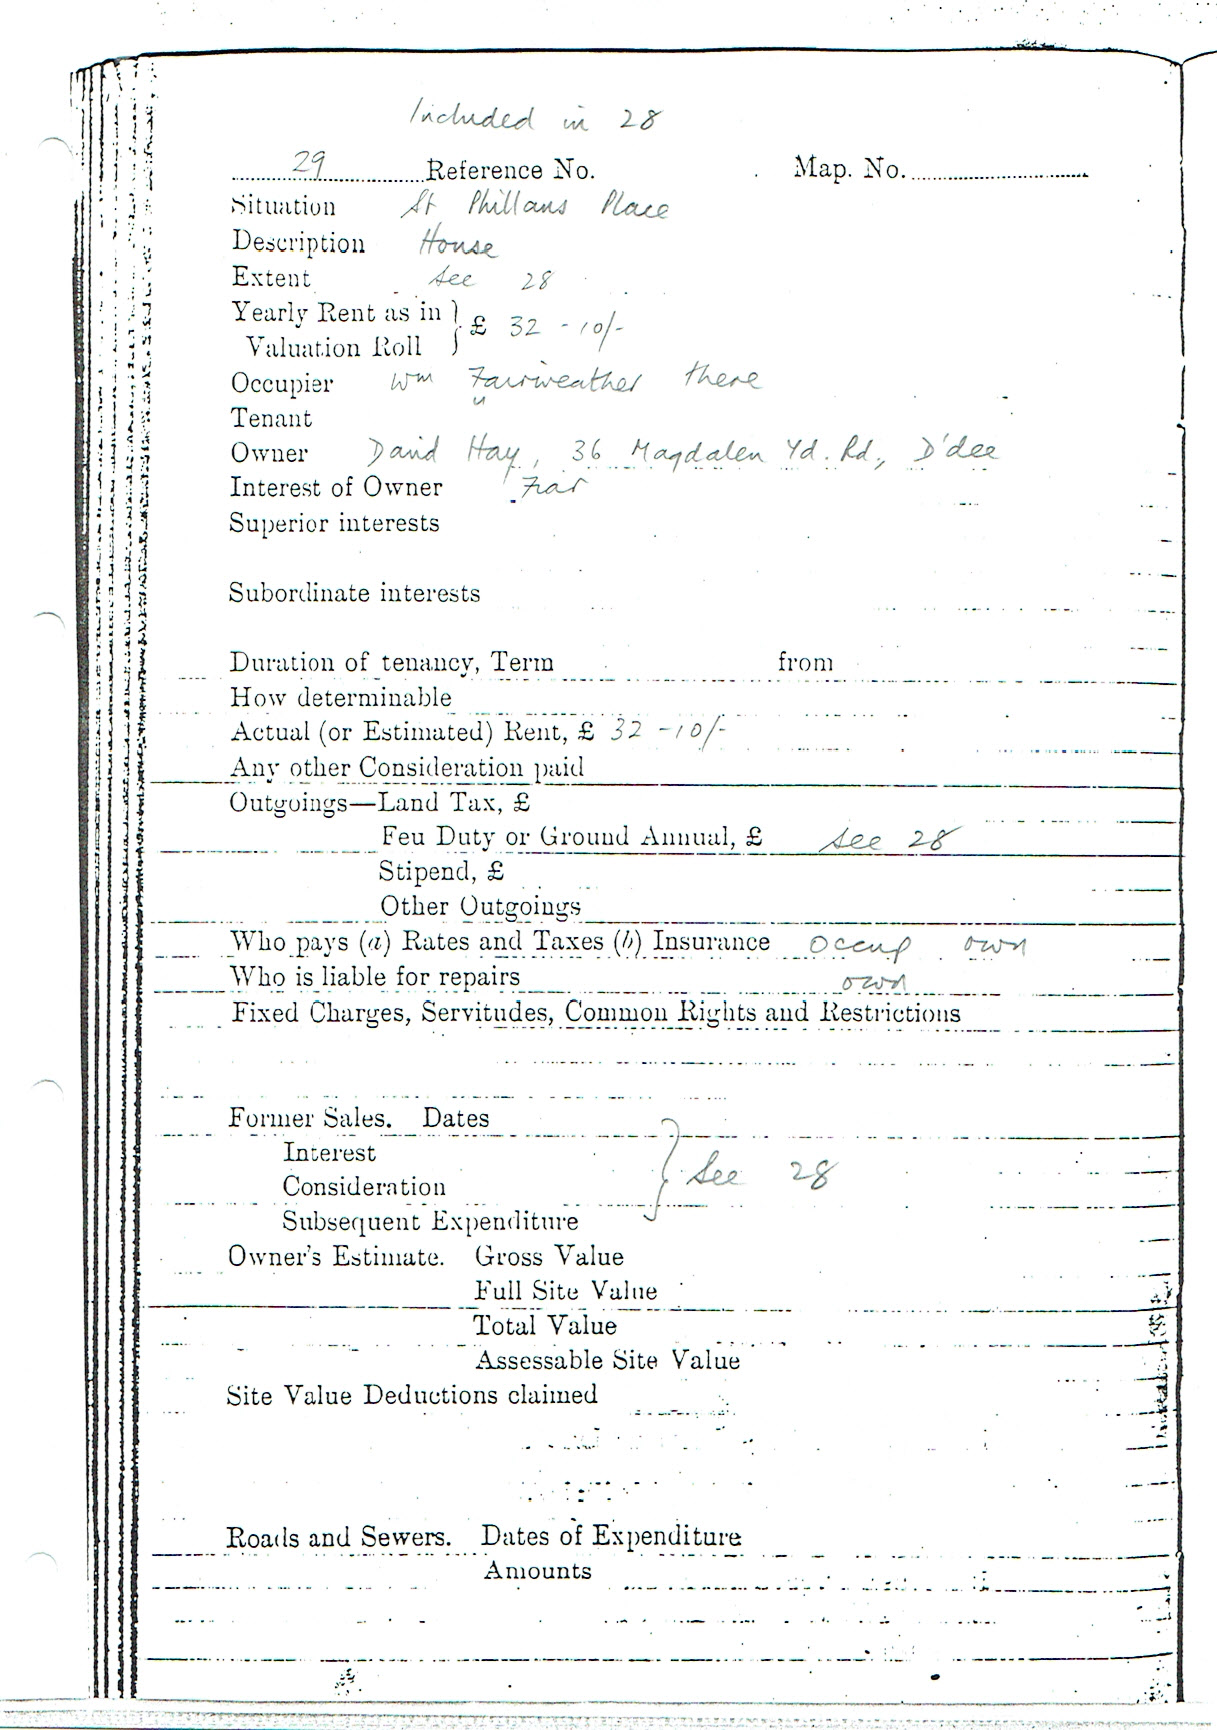 Included in 28
29 Reference No. Map. No.
Situation St Phillans Place
Description House
Extent see 28
Yearly Rent as in
Valuation Roll } £ 32 - 10/-
Occupier Wm Fairweather there
Tenant
Owner David Hay, 36 Magdalen Yd. Rd., D'dee
Interest of Owner Fiar
Superior interests
Subordinate interests
Duration of tenancy, Term from
How determinable
Actual (or Estimated) Rent, £ 32 - 10/-
Any other Consideration paid
Outgoings—Land Tax, £
Feu Duty or Ground Annual, £ see 28
Stipend, £
Other Outgoings
Who pays (a) Rates and Taxes (b) Insurance Occup own
Who is liable for repairs own
Fixed Charges, Servitudes, Common Rights and Restrictions
Former Sales. Dates
Interest
Consideration } See 28
Subsequent Expenditure
Owner's Estimate. Gross Value
Full Site Value
Total Value
Assessable Site Value
Site Value Deductions claimed
Roads and Sewers. Dates of Expenditure
Amounts